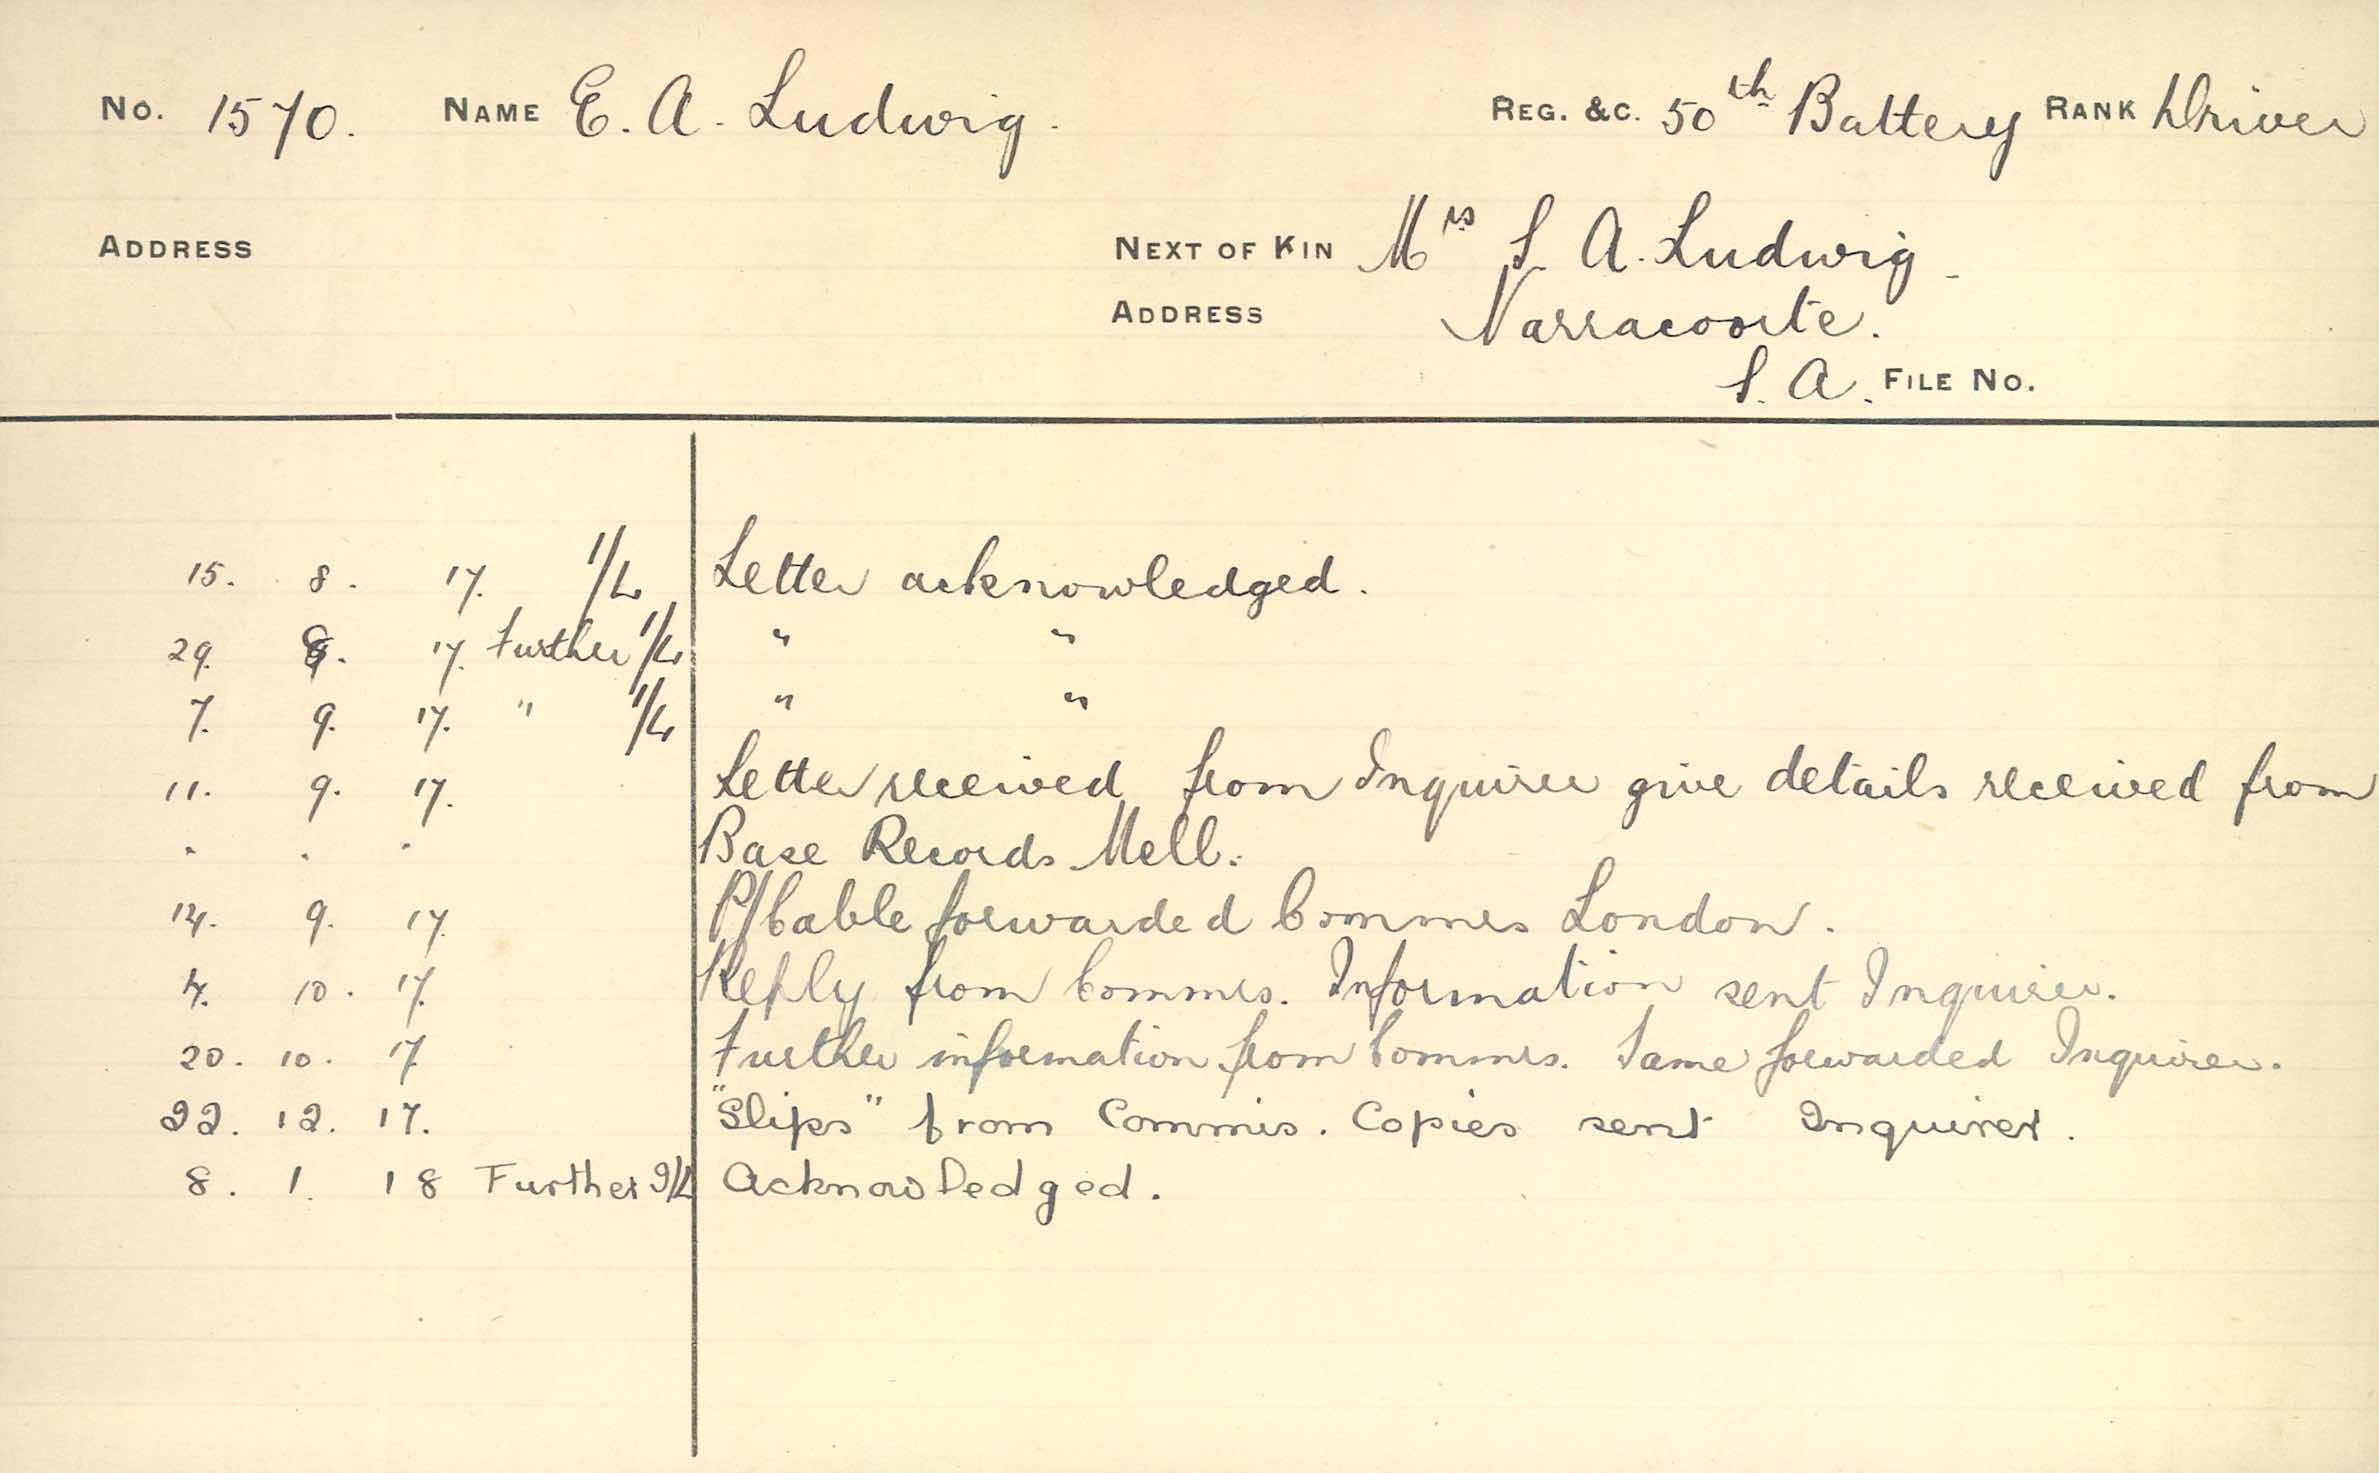 No. 1570. NAME E. A. Ludwig. REG. &C. 50th Battery RANK Driver
ADDRESS NEXT OF KIN Mrs S. A. Ludwig.
ADDRESS Narracoorte.
S. A. FILE No.
15. 8. 17. I/L Letter acknowledged.
29. 8. 17. Further I/L " "
7. 9. 17. " I/L " "
11. 9. 17. Letter received from Inquirer give details received from
" " " Base Records Melb.
14. 9. 17. P/Cable forwarded Commrs London.
4. 10. 17. Reply from Commrs. Information sent Inquirer.
20. 10. 17 Further information from Commrs. Same forwarded Inquirer.
22. 12. 17. "Slips" from Commis. Copies sent Inquirer.
8. 1. 18 Further I/L Acknowledged.